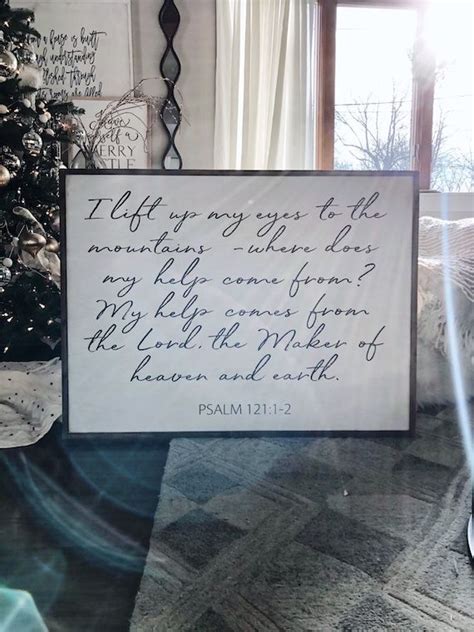 a house is built
understanding
through
rooms are filled
Have
yourself a
MERRY
LITTLE
I lift up my eyes to the
mountains -where does
my help come from?
My help comes from
the Lord, the Maker of
heaven and earth.
PSALM 121:1-2